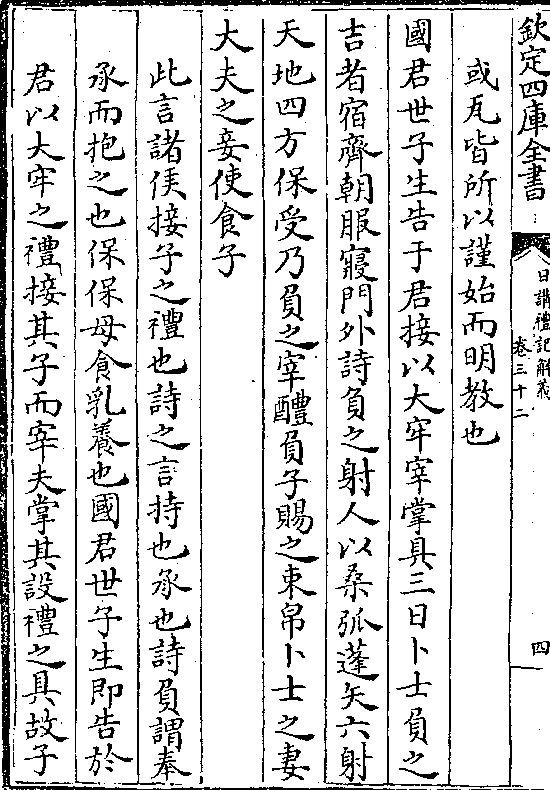 欽定四庫全書
日講禮記解義
卷三十二
四
或瓦皆所以謹始而明教也
國君世子生告于君接以大牢宰掌具三日卜士負之
吉者宿齊朝服寢門外詩負之射人以桑弧蓬矢六射
天地四方保受乃負之宰醴負子賜之束帛卜士之妻
大夫之妾使食子
此言諸侯接子之禮也詩之言持也承也詩負謂奉
承而抱之也保保母食乳養也國君世子生即告於
君以大牢之禮接其子而宰夫掌其設禮之具故子